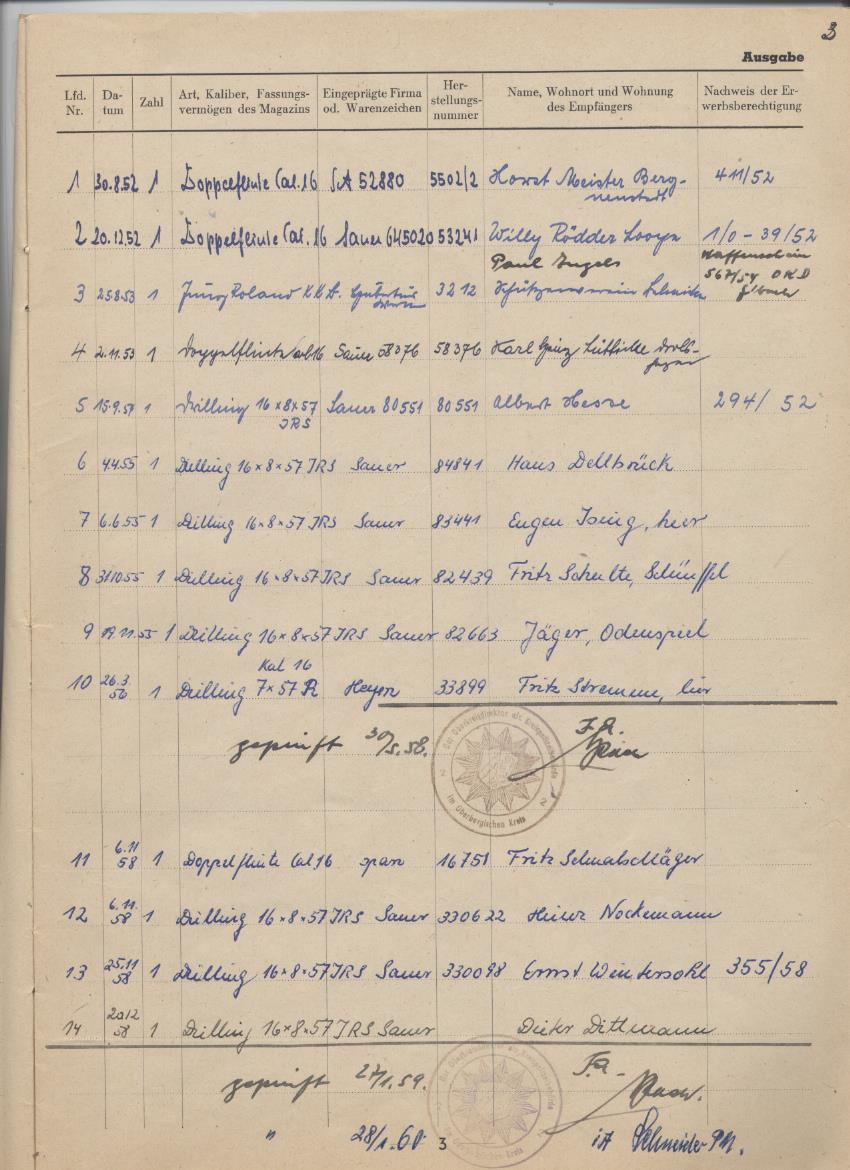 3
Ausgabe
Lfd. Nr. Da-tum Zahl Art, Kaliber, Fassungs-vermögen des Magazins Eingeprägte Firma od. Warenzeichen Her-stellungs-nummer Name, Wohnort und Wohnung des Empfängers Nachweis der Er-werbsberechtigung
1 30.8.52 1 Doppelflinte Cal. 16 52880 5502/2 Horst Meister Berg- 411/52
neustadt
2 20.12.52 1 Doppelflinte Cal. 16 Sauer 645020 53241 Willy Rödder 1/0 - 39/52
Paul Waffenschein
567/54 OKD
3 25.8.53 1 3212 Schützenverein
4 2.11.53 1 Doppelflinte Cal 16 Sauer 58376 58376 Karl
5 15.9.54 1 Drilling 16×8×57 Sauer 80551 80551 Albert Hesse 294/52
JRS
6 4.4.55 1 Drilling 16×8×57 JRS Sauer 84841 Hans Dellbrück
7 6.6.55 1 Drilling 16×8×57 JRS Sauer 83441 Eugen Ising, hier
8 31.10.55 1 Drilling 16×8×57 JRS Sauer 82439 Fritz Schulte,
9 19.11.55 1 Drilling 16×8×57 JRS Sauer 82663 Jäger, Odenspiel
Kal 16
10 26.3.56 1 Drilling 7×57 R Heym 33899 Fritz Stremme, hier
geprüft 30/5.58. J.A.
Der Oberkreisdirektor als Kreispolizeibehörde
im Oberbergischen Kreis
11 6.11 58 1 Doppelflinte Cal. 16 span 16751 Fritz Schmalschläger
12 6.11. 58 1 Drilling 16×8×57 JRS Sauer 330622 Heinz Nockemann
13 25.11 58 1 Drilling 16×8×57 JRS Sauer 330098 Ernst Wintersohl 355/58
14 20.12 58 1 Drilling 16×8×57 JRS Sauer Dieter Dittmann
geprüft 27/1.59.
" 28/1.60 3 iA Schneider PM.